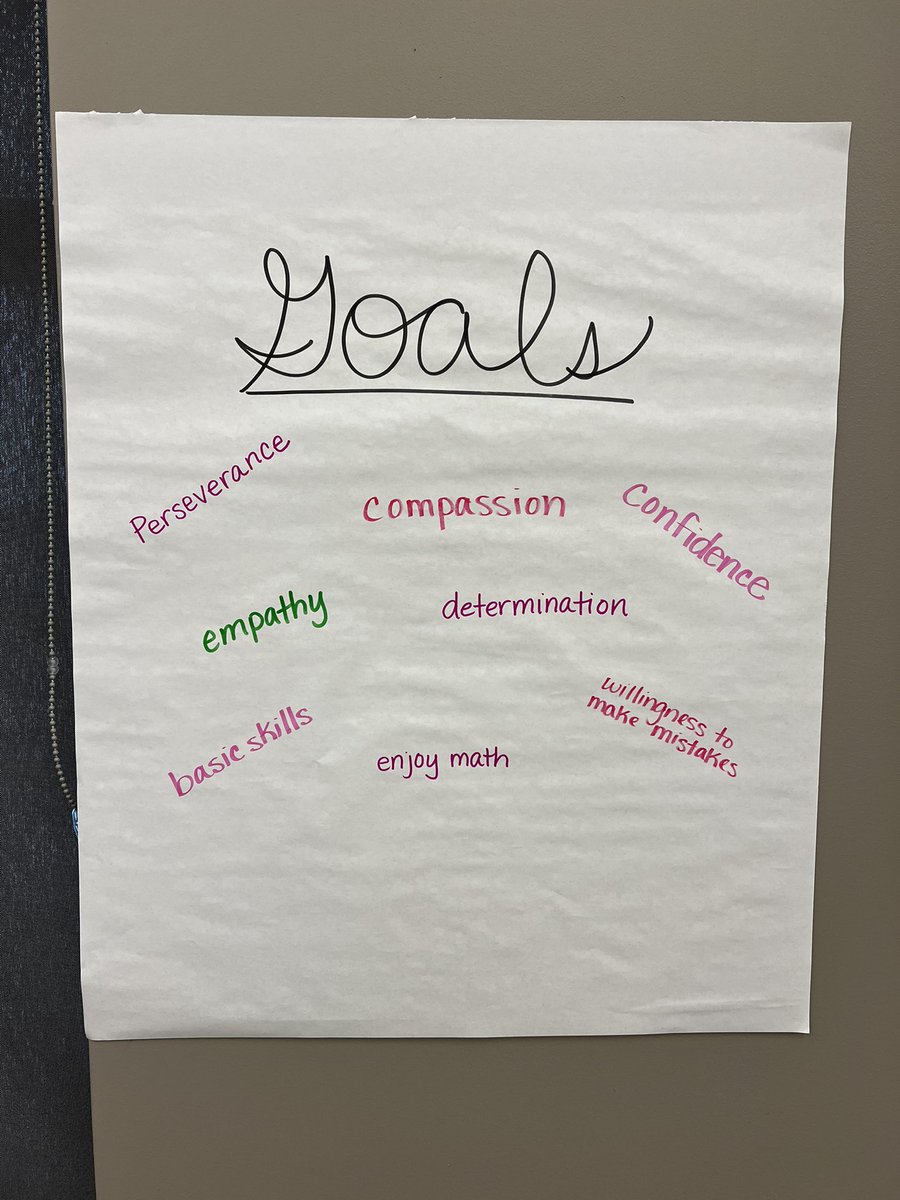 Goals
Perseverance
compassion
Confidence
empathy
determination
basic skills
enjoy math
willingness to
make mistakes